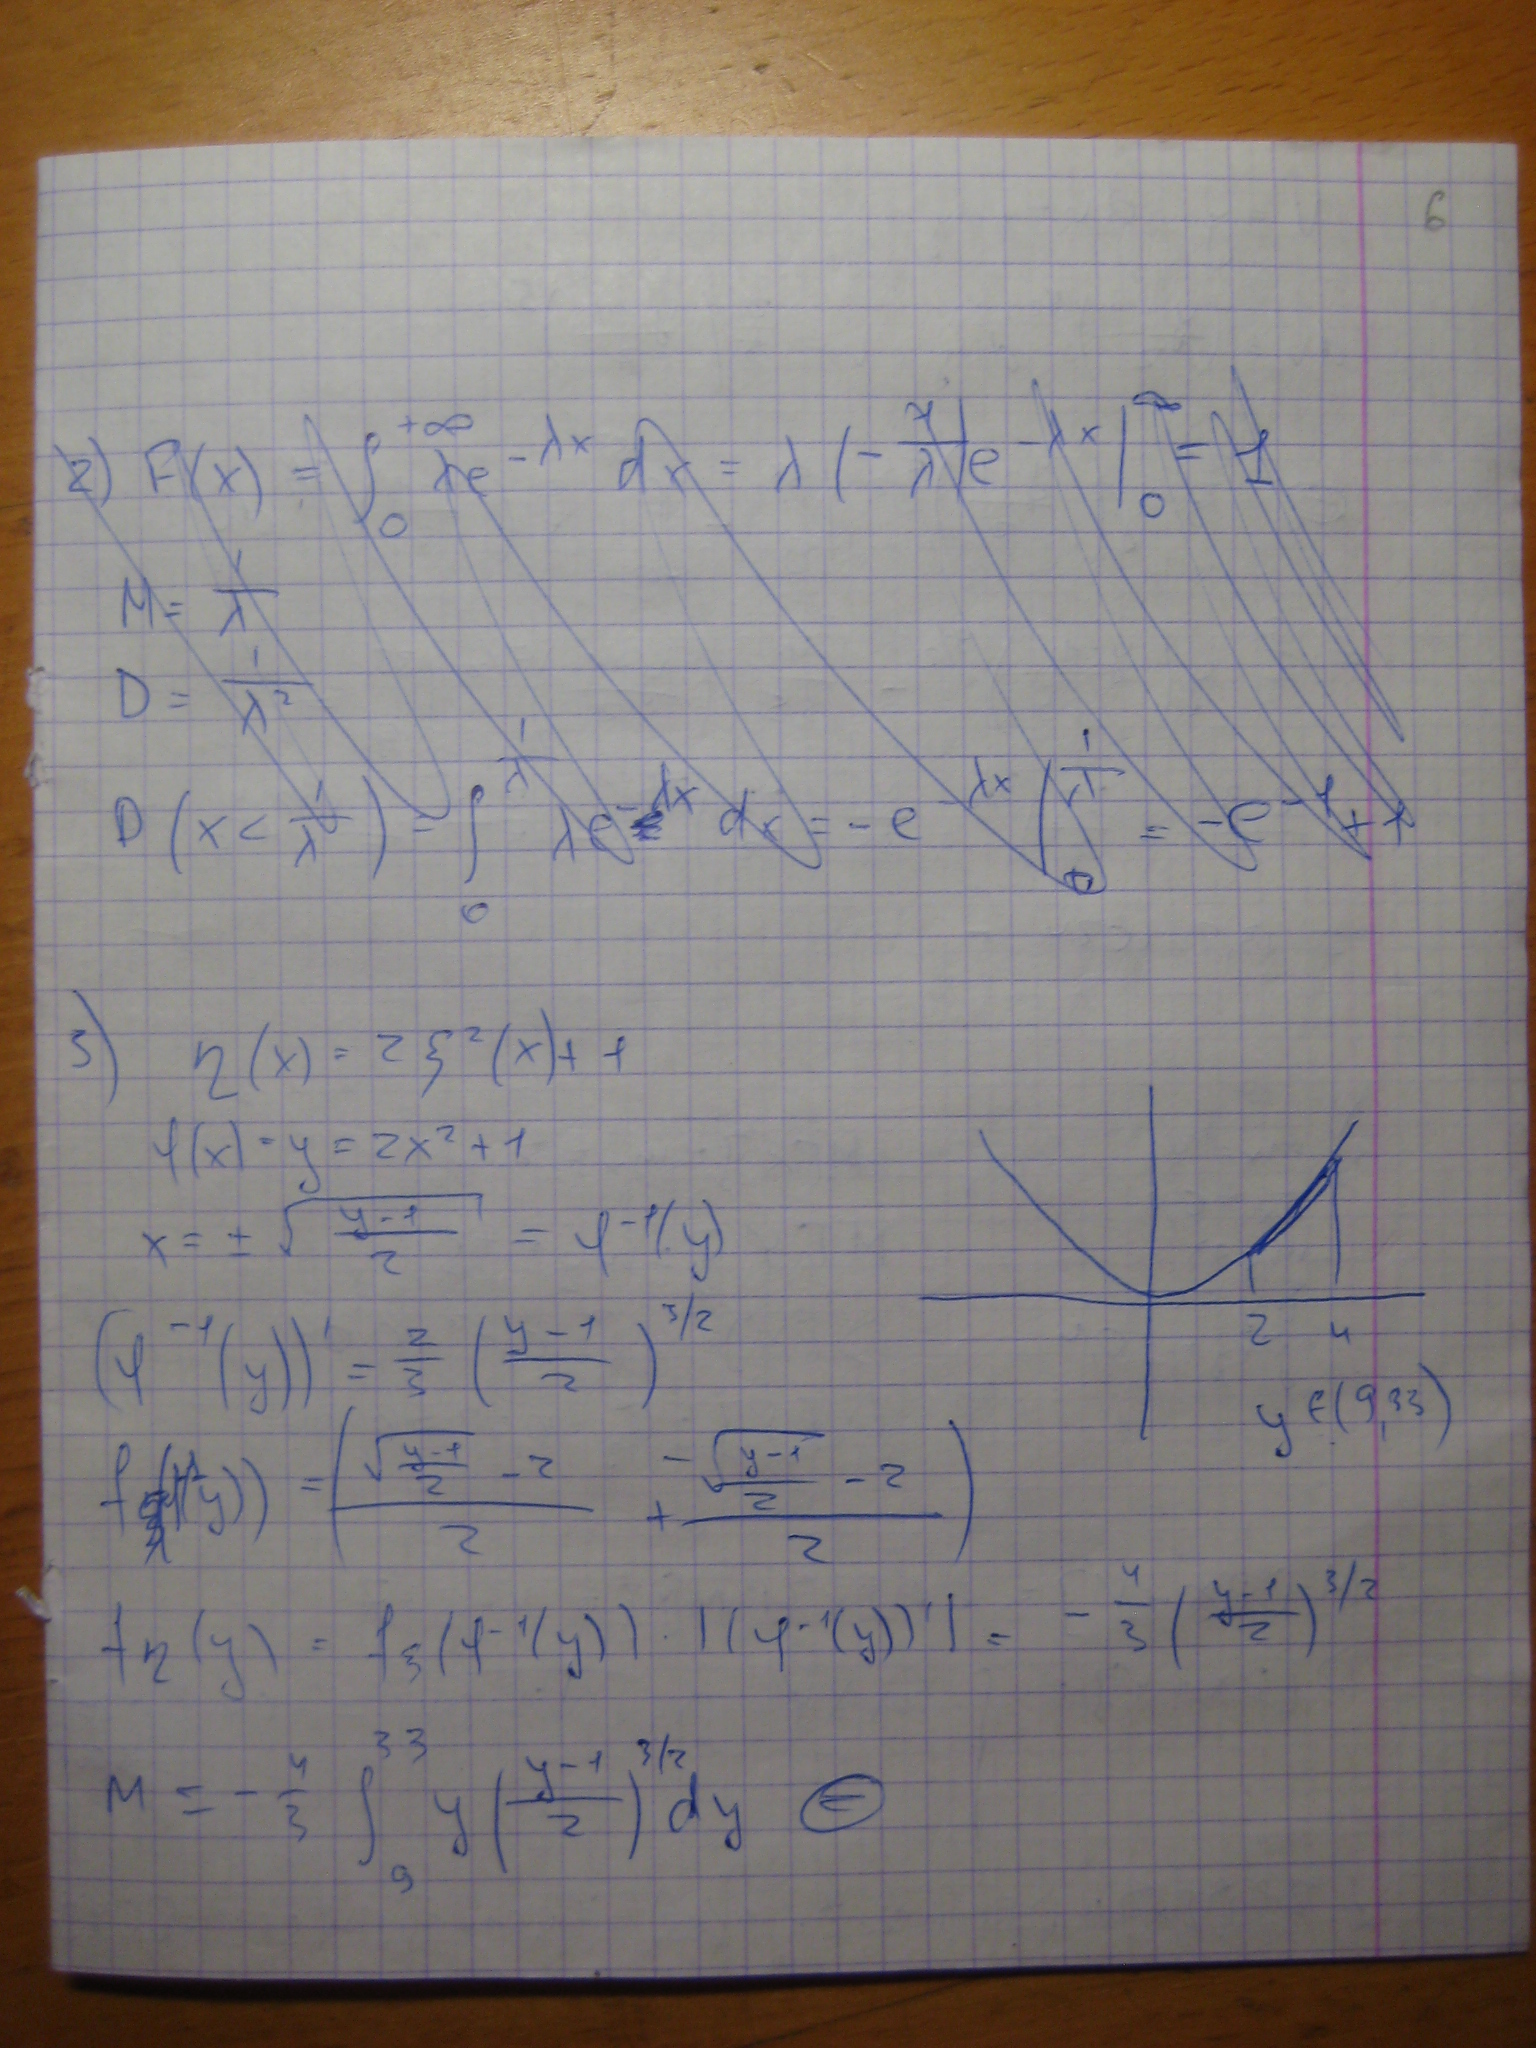 6
2) F(x) = ∫₀^{+∞} λe^{-λx} dx = λ(-1/λ)e^{-λx} |₀^∞ = 1
M = 1/λ
D = 1/λ²
D(x < 1/λ) = ∫₀^{1/λ} λe^{-λx} dx = -e^{-λx} |₀^{1/λ} = -e^{-1} + 1
3) η(x) = 2ξ²(x) + 1
φ(x) = y = 2x² + 1
x = ± √((y-1)/2) = φ⁻¹(y)
(φ⁻¹(y))' = 2/3 ((y-1)/2)^{3/2}
2 4
y ∈ (9,33)
f(φ⁻¹(y)) = ((√((y-1)/2) - 2)/2 + (-√((y-1)/2) - 2)/2)
f_η(y) = f_ξ(φ⁻¹(y)) · |(φ⁻¹(y))'| = -4/3 ((y-1)/2)^{3/2}
M = -4/3 ∫₉^{33} y((y-1)/2)^{3/2} dy =